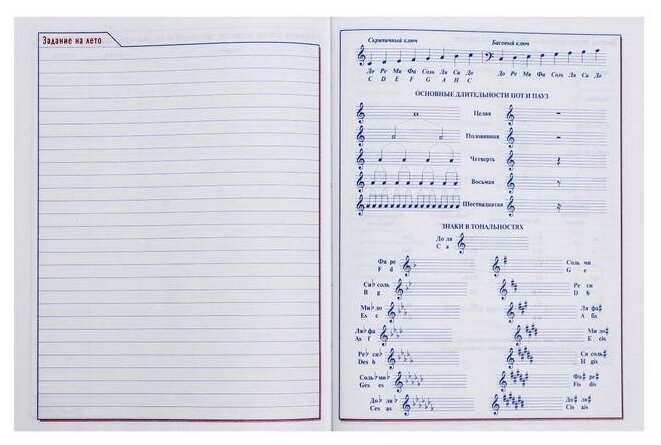 Задание на лето
Скрипичный ключ Басовый ключ
До Ре Ми Фа Соль Ля Си До До Ре Ми Фа Соль Ля Си До
C D E F G A H C
ОСНОВНЫЕ ДЛИТЕЛЬНОСТИ НОТ И ПАУЗ
Целая
Половинная
Четверть
Восьмая
Шестнадцатая
ЗНАКИ В ТОНАЛЬНОСТЯХ
До ля
C a
Фа ре Соль ми
F d G e
Си♭ соль Ре си
B g D h
Ми♭ до Ля фа♯
Es c A fis
Ля♭ фа Ми до♯
As f E cis
Ре♭ си♭ Си соль♯
Des b H gis
Соль♭ ми♭ Фа♯ ре♯
Ges es Fis dis
До♭ ля♭ До♯ ля♯
Ces as Cis ais